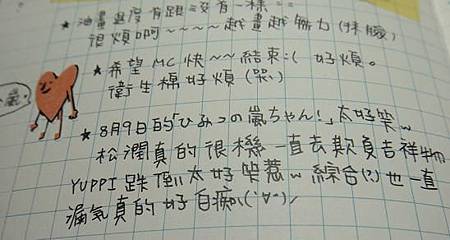 ★油畫進度有跟沒有一樣==
很煩啊~~~~越畫越無力(抹臉)
★希望MC快~~結束:( 好煩。
衛生棉好煩(哭)
嵐!
★8月9日的「ひみつの嵐ちゃん!」太好笑w
松潤真的很機 一直去欺負吉祥物
YUPPI 跌倒太好笑惹w 綜合(?)也一直
漏氣真的好白痴\(˙∀˙)/